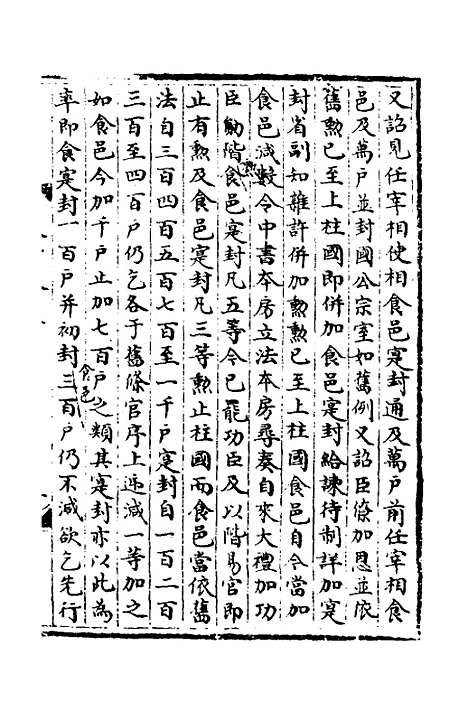 又詔見任宰相使相食邑寔封通及萬戶前任宰相食
邑及萬戶並封國公宗室如舊例又詔臣僚加恩並依
舊勲已至上柱國即併加食邑寔封給諫待制詳加寔
封省副如雜許併加勲勲已至上柱國食邑自令當加
食邑減數令中書本房立法本房尋奏自來大禮加功
臣勛階勲食邑寔封凡五等今已罷功臣及以階易官即
止有勲及食邑寔封凡三等勲止柱國而食邑當依舊
法自三百四百五百七百至一千戶寔封自一百二百
三百至四百戶仍乞各于舊條官序上逓減一等加之
如食邑今加千戶止加七百戶食邑之類其寔封亦以此為
率即食寔封一百戶并初封三百戶仍不減欲乞先行